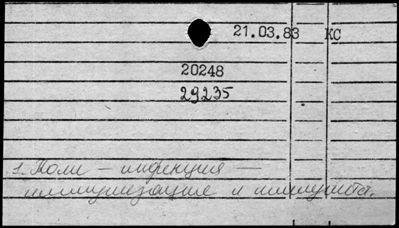 21.03.83 КС
20248
29235
1. Коли – инфекция –
иммунизация и иммунитет.